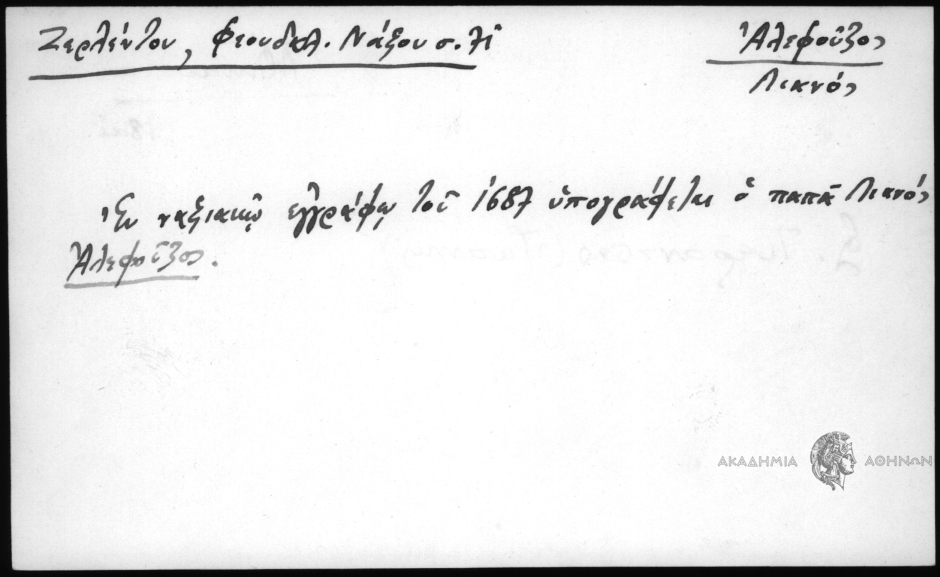 Ζερλέντου, Φεουδαλ. Νάξου σ. 71
Ἀλεφοῦζος
Λιανός
Ἐν ναξιακῷ ἐγγράφῳ τοῦ 1687 ὑπογράφεται ὁ παπᾶ Λιανός
Ἀλεφοῦζος.
ΑΚΑΔΗΜΙΑ ΑΘΗΝΩΝ